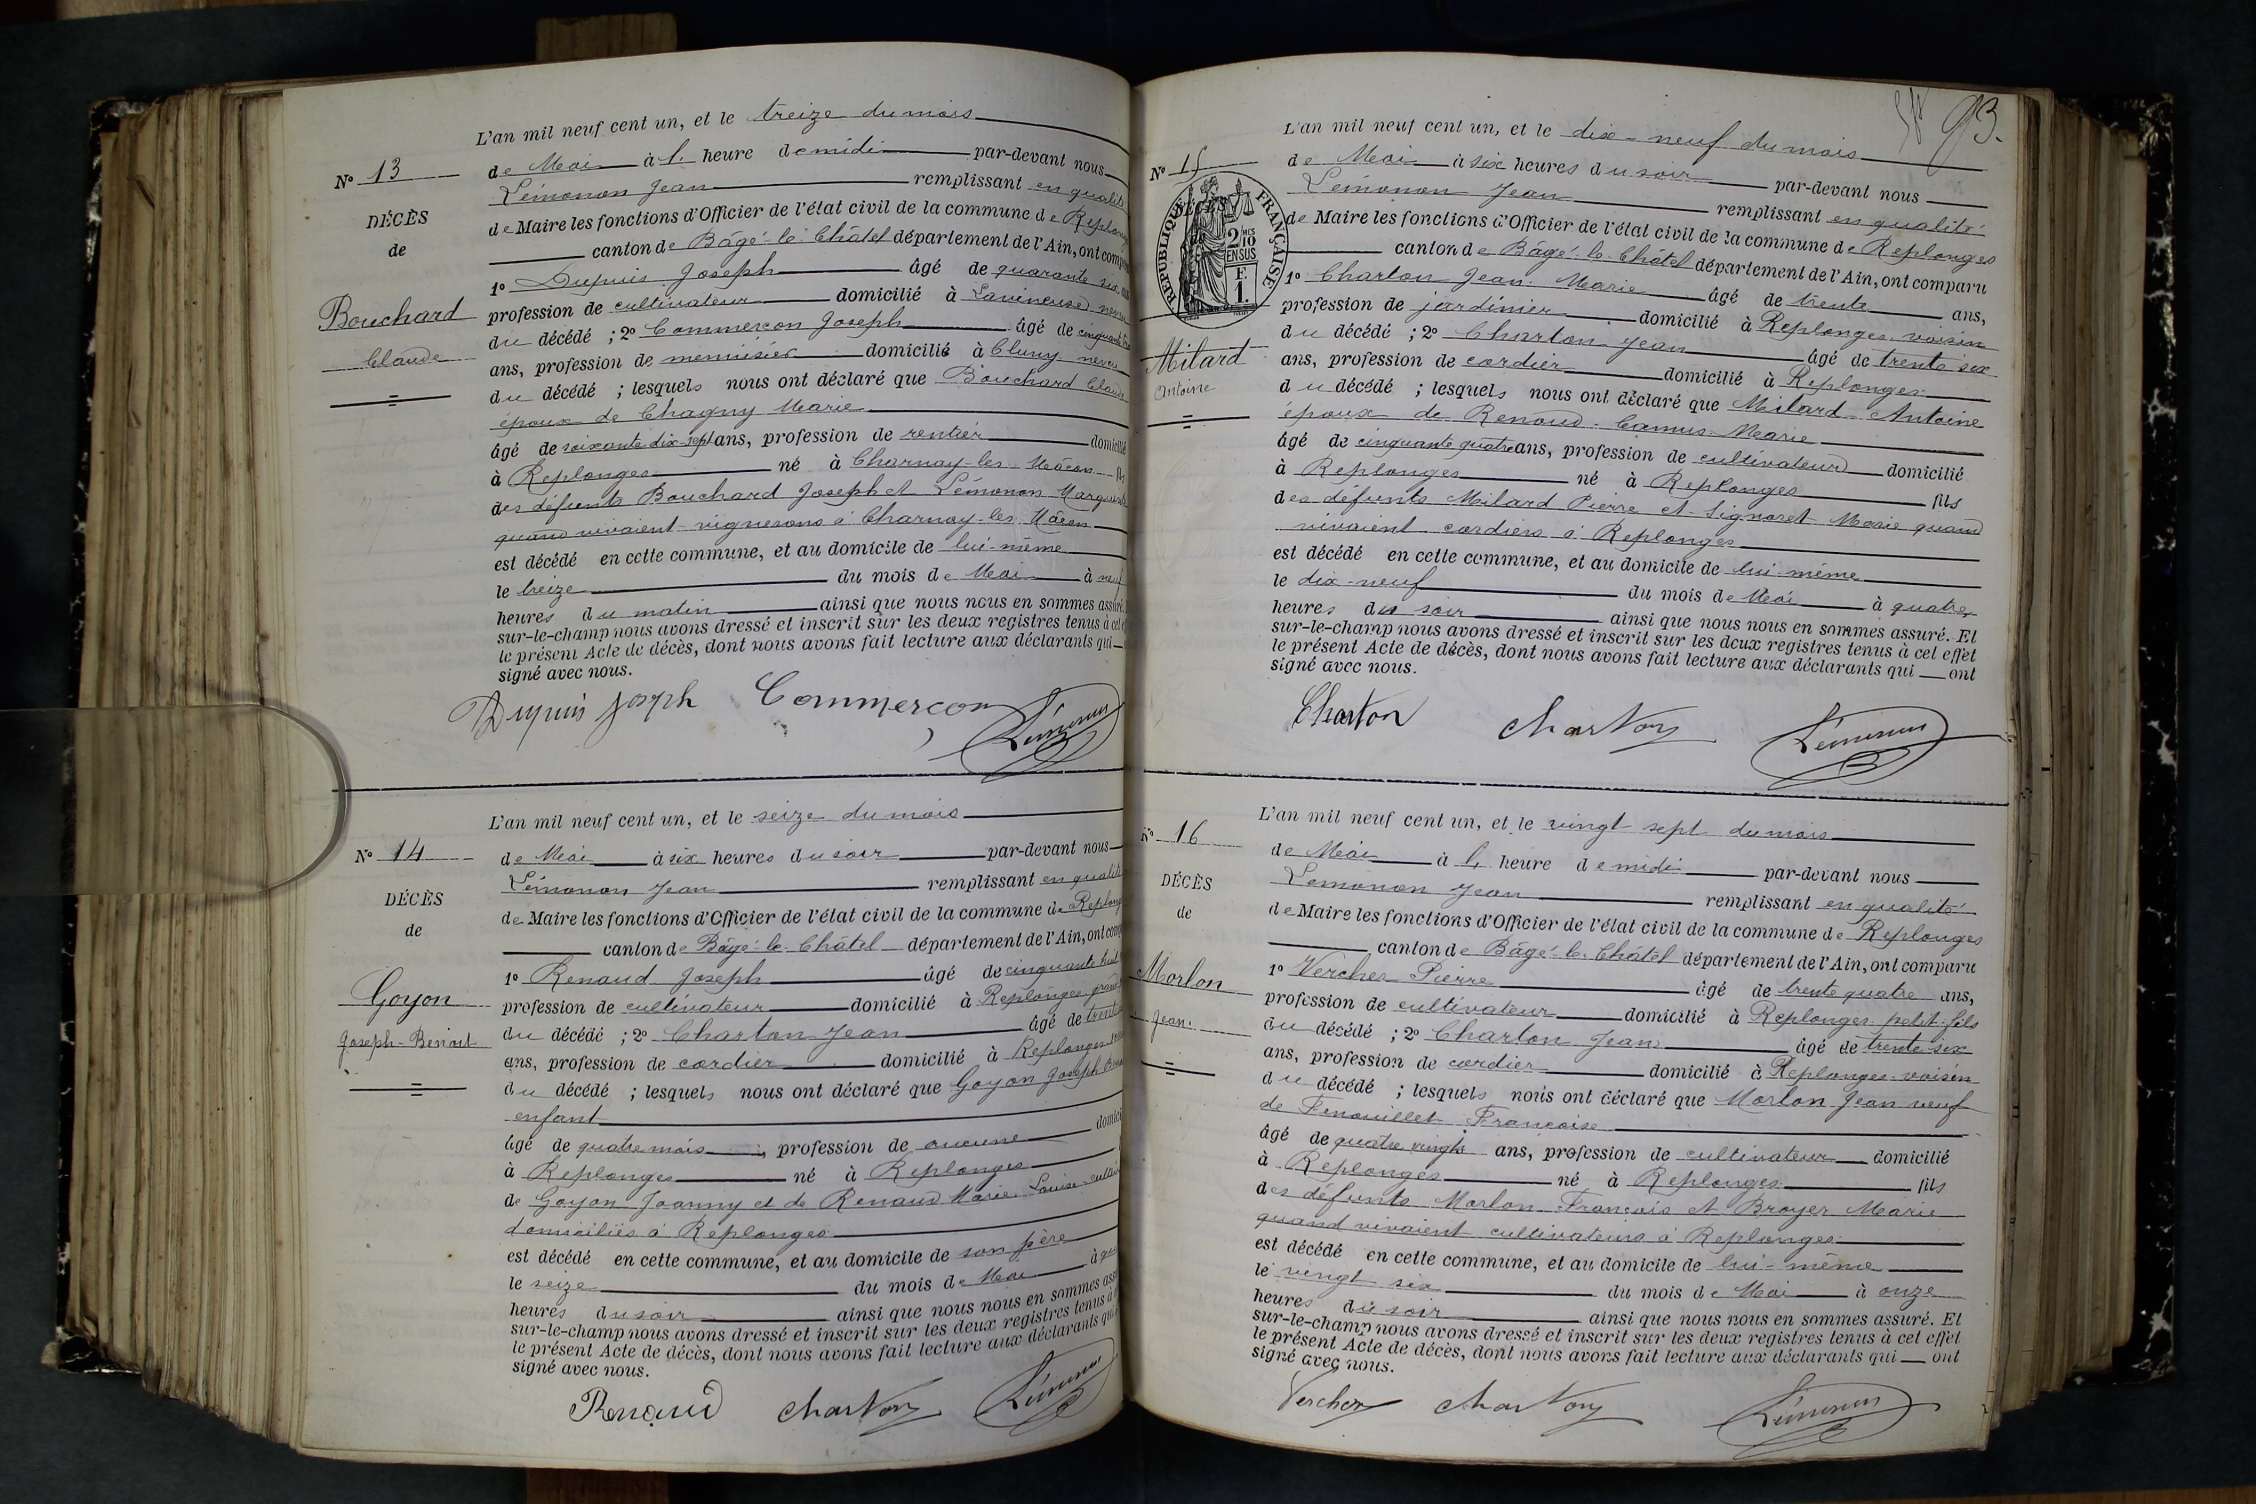 L'an mil neuf cent un, et le treize du mois
de Mai à 1. heure de midi par-devant nous
Lémonon Jean remplissant en qualité
de Maire les fonctions d'Officier de l'état civil de la commune de
canton de Bâgé-le-Châtel département de l'Ain, ont
1º Dupuis Joseph âgé de quarante six
profession de cultivateur domicilié à neveu
du décédé ; 2º Commerçon Joseph âgé de
ans, profession de menuisier domicilié à Cluny neveu
du décédé ; lesquels nous ont déclaré que Bouchard Claude
époux de Chagny Marie
âgé de soixante dix-sept ans, profession de rentier domicilié
à Replonges né à Charnay-les-Mâcon fils
des défunts Bouchard Joseph et Lémonon
quand vivaient vignerons à Charnay-les-Mâcon
est décédé en cette commune, et au domicile de lui-même
le treize du mois de Mai à neuf
heures du matin ainsi que nous nous en sommes assuré.
sur-le-champ nous avons dressé et inscrit sur les deux registres tenus à cet
le présent Acte de décès, dont nous avons fait lecture aux déclarants qui
signé avec nous.
Dupuis Joseph Commerçon Lémonon
Nº 13
DÉCÈS
de
Bouchard
Claude
L'an mil neuf cent un, et le seize du mois
de Mai à six heures du soir par-devant nous
Lémonon Jean remplissant en qualité
de Maire les fonctions d'Officier de l'état civil de la commune de
canton de Bâgé-le-Châtel département de l'Ain, ont
1º Renaud Joseph âgé de cinquante
profession de cultivateur domicilié à Replonges
du décédé ; 2º Charton Jean âgé de
ans, profession de cordier domicilié à Replonges
du décédé ; lesquels nous ont déclaré que Goyon Joseph
enfant
âgé de quatre mois, profession de aucune
à Replonges né à Replonges
de Goyon Joanny et de Renaud Marie-Louise
domiciliés à Replonges
est décédé en cette commune, et au domicile de son père
le seize du mois de Mai à
heures du soir ainsi que nous nous en sommes
sur-le-champ nous avons dressé et inscrit sur les deux registres tenus à
le présent Acte de décès, dont nous avons fait lecture aux déclarants
signé avec nous.
Renaud Charton Lémonon
Nº 14
DÉCÈS
de
Goyon
Joseph-Benoit
93.
L'an mil neuf cent un, et le dix-neuf du mois
de Mai à six heures du soir par-devant nous
Lémonon Jean remplissant en qualité
de Maire les fonctions d'Officier de l'état civil de la commune de Replonges
canton de Bâgé-le-Châtel département de l'Ain, ont comparu
1º Charton Jean-Marie âgé de trente ans,
profession de jardinier domicilié à Replonges voisin
du décédé ; 2º Charton Jean âgé de trente six
ans, profession de cordier domicilié à Replonges
du décédé ; lesquels nous ont déclaré que Milard Antoine
époux de Renoud-Camus Marie
âgé de cinquante quatre ans, profession de cultivateur domicilié
à Replonges né à Replonges fils
des défunts Milard Pierre et Signoret Marie quand
vivaient cordiers à Replonges
est décédé en cette commune, et au domicile de lui-même
le dix-neuf du mois de Mai à quatre
heures du soir ainsi que nous nous en sommes assuré. Et
sur-le-champ nous avons dressé et inscrit sur les deux registres tenus à cet effet
le présent Acte de décès, dont nous avons fait lecture aux déclarants qui ont
signé avec nous.
Charton Charton Lémonon
Nº 15
RÉPUBLIQUE FRANÇAISE
2/10
EN SUS
F.
1.
Milard
Antoine
L'an mil neuf cent un, et le vingt sept du mois
de Mai à 1. heure de midi par-devant nous
Lémonon Jean remplissant en qualité
de Maire les fonctions d'Officier de l'état civil de la commune de Replonges
canton de Bâgé-le-Châtel département de l'Ain, ont comparu
1º Vercher Pierre âgé de trente quatre ans,
profession de cultivateur domicilié à Replonges petit-fils
du décédé ; 2º Charton Jean âgé de trente six
ans, profession de cordier domicilié à Replonges voisin
du décédé ; lesquels nous ont déclaré que Morlon Jean veuf
de Fenouillet Françoise
âgé de quatre vingts ans, profession de cultivateur domicilié
à Replonges né à Replonges fils
des défunts Morlon François et Broyer Marie
quand vivaient cultivateurs à Replonges
est décédé en cette commune, et au domicile de lui-même
le vingt six du mois de Mai à onze
heures du soir ainsi que nous nous en sommes assuré. Et
sur-le-champ nous avons dressé et inscrit sur les deux registres tenus à cet effet
le présent Acte de décès, dont nous avons fait lecture aux déclarants qui ont
signé avec nous.
Vercher Charton Lémonon
Nº 16
DÉCÈS
de
Morlon
Jean.